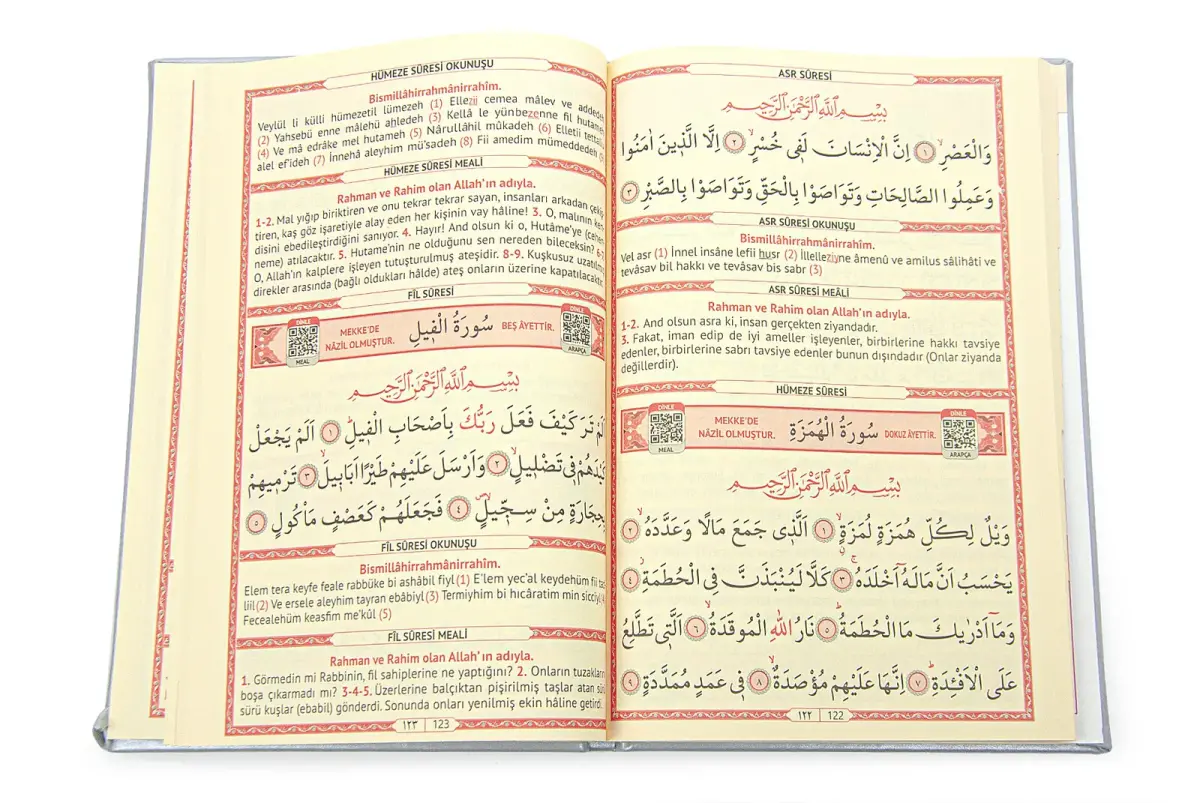 ASR SÛRESİ
بِسْمِ اللّٰهِ الرَّحْمٰنِ الرَّحٖيمِ
وَالْعَصْرِۙ ﴿١﴾ اِنَّ الْاِنْسَانَ لَفٖي خُسْرٍۙ ﴿٢﴾ اِلَّا الَّذٖينَ اٰمَنُوا
وَعَمِلُوا الصَّالِحَاتِ وَتَوَاصَوْا بِالْحَقِّ وَتَوَاصَوْا بِالصَّبْرِ ﴿٣﴾
ASR SÛRESİ OKUNUŞU
Bismillâhirrahmânirrahîm.
Vel asr (1) İnnel insâne lefii husr (2) İllelleziyne âmenû ve amilus sâlihâti ve
tevâsav bil hakkı ve tevâsav bis sabr (3)
ASR SÛRESİ MEÂLİ
Rahman ve Rahim olan Allah'ın adıyla.
1-2. And olsun asra ki, insan gerçekten ziyandadır.
3. Fakat, iman edip de iyi ameller işleyenler, birbirlerine hakkı tavsiye
edenler, birbirlerine sabrı tavsiye edenler bunun dışındadır (Onlar ziyanda
değillerdir).
HÜMEZE SÛRESİ
DİNLE MEAL MEKKE'DE NÂZİL OLMUŞTUR. سُورَةُ الْهُمَزَةِ DOKUZ ÂYETTİR. DİNLE ARAPÇA
بِسْمِ اللّٰهِ الرَّحْمٰنِ الرَّحٖيمِ
وَيْلٌ لِكُلِّ هُمَزَةٍ لُمَزَةٍۙ ﴿١﴾ اَلَّذٖي جَمَعَ مَالًا وَعَدَّدَهُۙ ﴿٢﴾
يَحْسَبُ اَنَّ مَالَهُٓ اَخْلَدَهُۚ ﴿٣﴾ كَلَّا لَيُنْبَذَنَّ فِي الْحُطَمَةِۘ ﴿٤﴾
وَمَٓا اَدْرٰيكَ مَا الْحُطَمَةُؕ ﴿٥﴾ نَارُ اللّٰهِ الْمُوقَدَةُۙ ﴿٦﴾ اَلَّتٖي تَطَّلِعُ
عَلَى الْاَفْـِٔدَةِؕ ﴿٧﴾ اِنَّهَا عَلَيْهِمْ مُؤْصَدَةٌۙ ﴿٨﴾ فٖي عَمَدٍ مُمَدَّدَةٍ ﴿٩﴾
١٢٢ 122
HÜMEZE SÛRESİ OKUNUŞU
Bismillâhirrahmânirrahîm.
Veylül li külli hümezetil lümezeh (1) Ellezij cemea mâlev ve addedeh
(2) Yahsebü enne mâlehü ahledeh (3) Kellâ le yünbezenne fil hutameh
(4) Ve mâ edrâke mel hutameh (5) Nârullâhil mûkadeh (6) Elletii tettaliu
alel ef'ideh (7) İnnehâ aleyhim mü'sadeh (8) Fii amedim mümeddedeh
HÜMEZE SÛRESİ MEALİ
Rahman ve Rahim olan Allah'ın adıyla.
1-2. Mal yığıp biriktiren ve onu tekrar tekrar sayan, insanları arkadan çekiş-
tiren, kaş göz işaretiyle alay eden her kişinin vay hâline! 3. O, malının ken-
disini ebedileştirdiğini sanıyor. 4. Hayır! And olsun ki o, Hutâme'ye (Cehen-
neme) atılacaktır. 5. Hutame'nin ne olduğunu sen nereden bileceksin? 6-7.
O, Allah'ın kalplere işleyen tutuşturulmuş ateşidir. 8-9. Kuşkusuz uzatılmış
direkler arasında (bağlı oldukları hâlde) ateş onların üzerine kapatılacaktır.
FİL SÛRESİ
DİNLE MEAL MEKKE'DE NÂZİL OLMUŞTUR. سُورَةُ الْفٖيلِ BEŞ ÂYETTİR. DİNLE ARAPÇA
بِسْمِ اللّٰهِ الرَّحْمٰنِ الرَّحٖيمِ
اَلَمْ تَرَ كَيْفَ فَعَلَ رَبُّكَ بِاَصْحَابِ الْفٖيلِؕ ﴿١﴾ اَلَمْ يَجْعَلْ
كَيْدَهُمْ فٖي تَضْلٖيلٍۙ ﴿٢﴾ وَاَرْسَلَ عَلَيْهِمْ طَيْرًا اَبَابٖيلَۙ ﴿٣﴾ تَرْمٖيهِمْ
بِحِجَارَةٍ مِنْ سِجّٖيلٍۙ ﴿٤﴾ فَجَعَلَهُمْ كَعَصْفٍ مَأْكُولٍ ﴿٥﴾
FİL SÛRESİ OKUNUŞU
Bismillâhirrahmânirrahîm.
Elem tera keyfe feale rabbüke bi ashâbil fiyl (1) E'lem yec'al keydehüm fii tad
liil (2) Ve ersele aleyhim tayran ebâbiyl (3) Termiyhim bi hıcâratim min sicciyl
Fecealehüm keasfim me'kûl (5)
FİL SÛRESİ MEALİ
Rahman ve Rahim olan Allah'ın adıyla.
1. Görmedin mi Rabbinin, fil sahiplerine ne yaptığını? 2. Onların tuzaklarını
boşa çıkarmadı mı? 3-4-5. Üzerlerine balçıktan pişirilmiş taşlar atan sürü
sürü kuşlar (ebabil) gönderdi. Sonunda onları yenilmiş ekin hâline getirdi.
١٢٣ 123